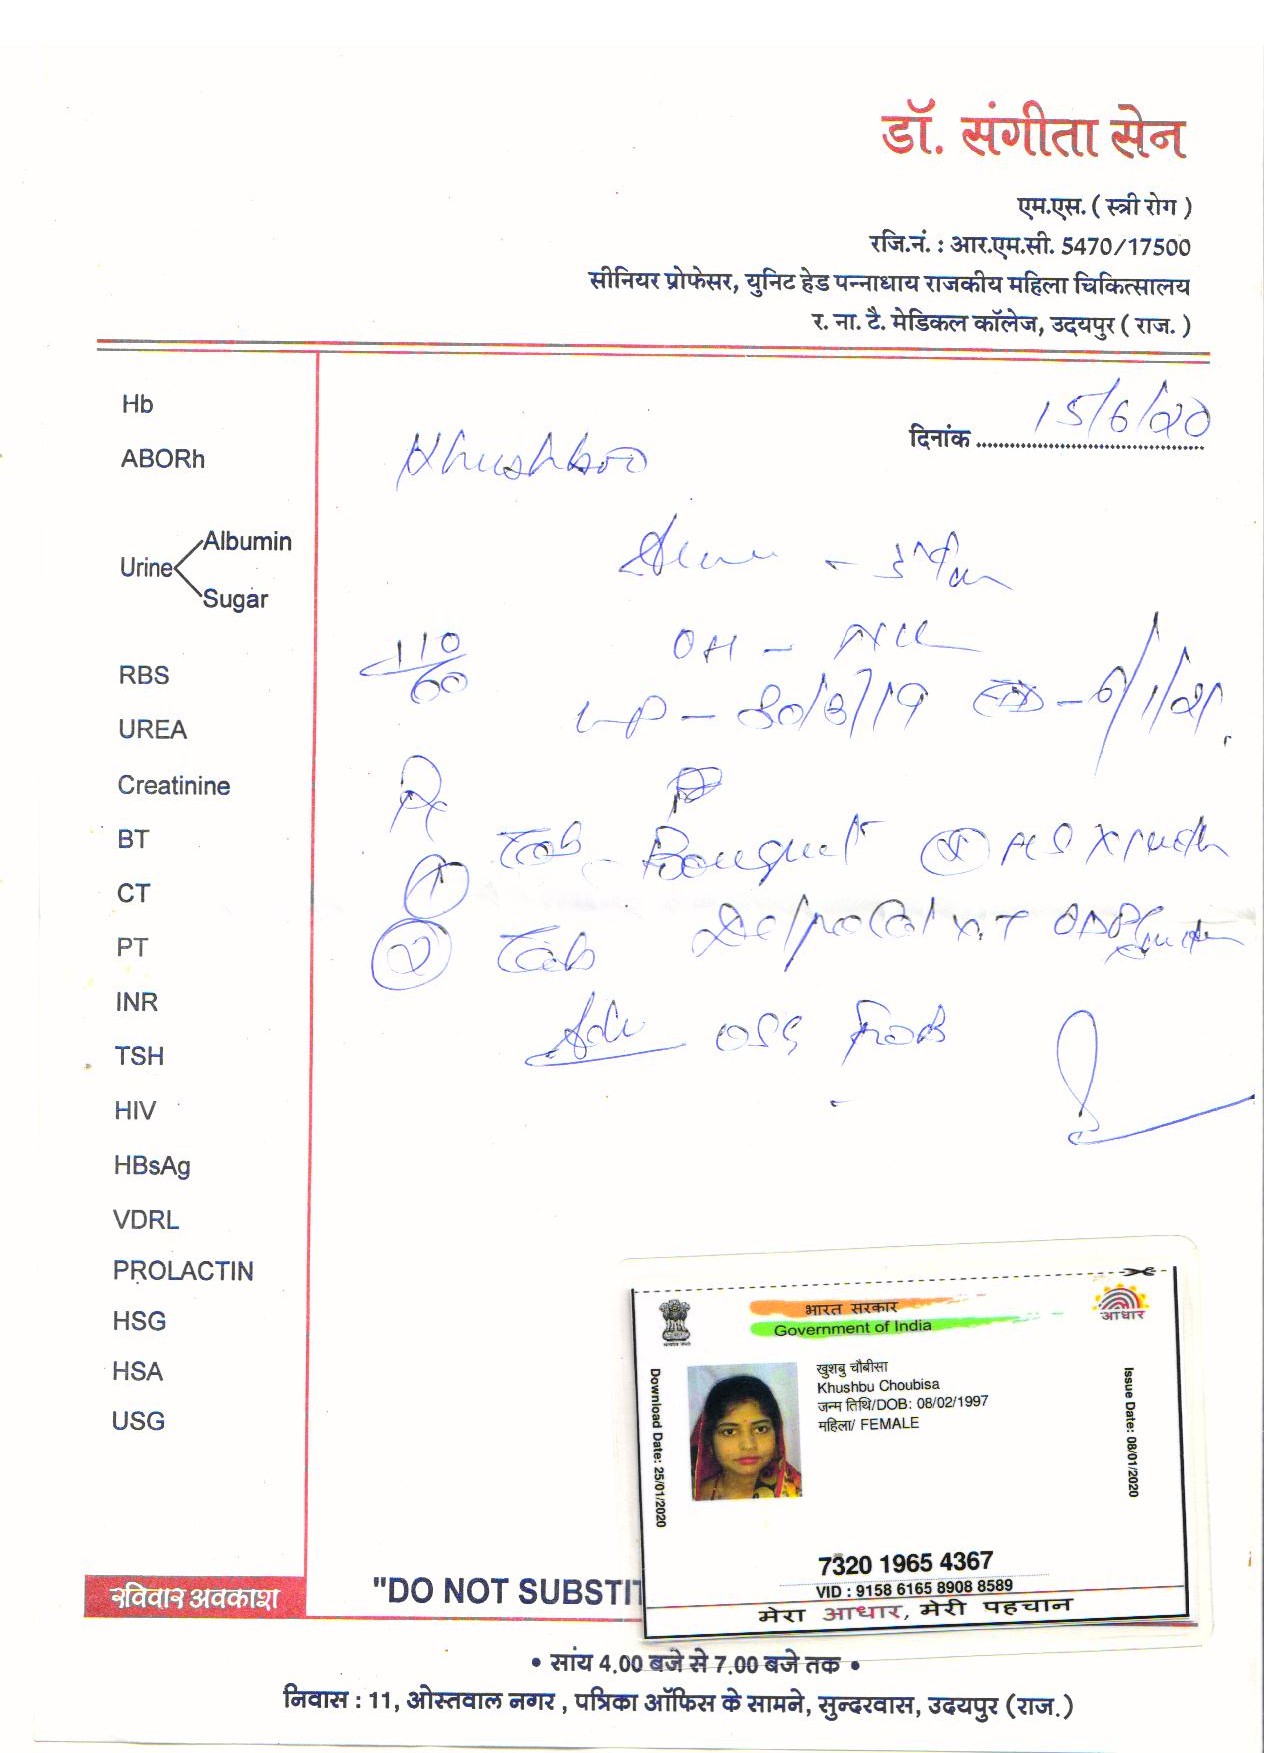 डॉ. संगीता सेन
एम.एस. ( स्त्री रोग )
रजि.नं. : आर.एम.सी. 5470/17500
सीनियर प्रोफेसर, युनिट हेड पन्नाधाय राजकीय महिला चिकित्सालय
र. ना. टै. मेडिकल कॉलेज, उदयपुर ( राज. )
दिनांक 15/6/20
Khushboo
OH - Nil
110/60
Tab
Tab
Adv
Hb
ABORh
Urine
Albumin
Sugar
RBS
UREA
Creatinine
BT
CT
PT
INR
TSH
HIV
HBsAg
VDRL
PROLACTIN
HSG
HSA
USG
भारत सरकार
Government of India
आधार
खुशबु चौबीसा
Khushbu Choubisa
जन्म तिथि/DOB: 08/02/1997
महिला/ FEMALE
Download Date: 25/01/2020
Issue Date: 08/01/2020
7320 1965 4367
VID : 9158 6165 8908 8589
मेरा आधार, मेरी पहचान
रविवार अवकाश
"DO NOT SUBSTIT
• सांय 4.00 बजे से 7.00 बजे तक •
निवास : 11, ओस्तवाल नगर , पत्रिका ऑफिस के सामने, सुन्दरवास, उदयपुर (राज.)